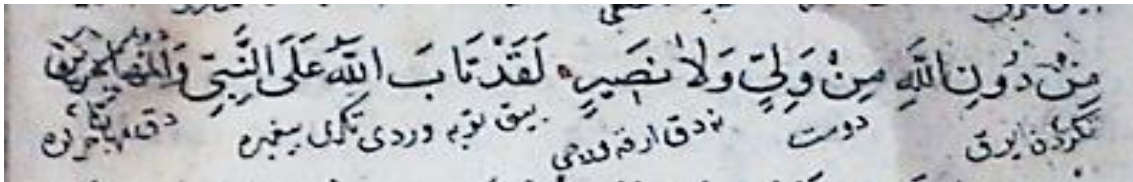 مِنْ دُونِ اللَّهِ مِنْ وَلِيٍّ وَلَا نَصِيرٍ لَقَدْ تَابَ اللَّهُ عَلَى النَّبِيِّ وَالْمُهَاجِرِينَ
تكريدن ايرق دوست نه دق ارقه بيق توبه وردى تكرى پيغمبره دق مهاجرلره